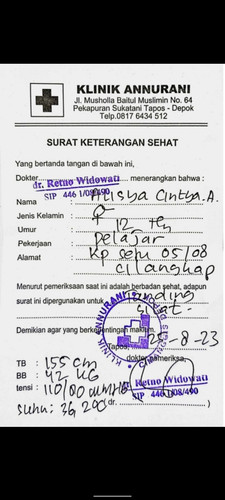 KLINIK ANNURANI
Jl. Musholla Baitul Muslimin No. 64
Pekapuran Sukatani Tapos - Depok
Telp.0817 6434 512
SURAT KETERANGAN SEHAT
Yang bertanda tangan di bawah ini,
Dokter dr. Retno Widowati menerangkan bahwa :
SIP 446.1/08/490
Nama : Alisya Cintya.A.
Jenis Kelamin : ♀
Umur : 12 th
Pekerjaan : pelajar
Alamat : Kp 05/08
cilangkap
Menurut pemeriksaan saat ini adalah berbadan sehat, adapun
surat ini dipergunakan untuk
silat
KLINIK ANNURANI
Demikian agar yang berkepentingan maklum,
Tapos, 8-23
TB : 155 cm
dokter pemeriksa,
BB : 42 KG
tensi : 110/00 mmHg
dr. Retno Widowati
SIP 446.1/08/490
suhu: 36, 20c
(dr. )